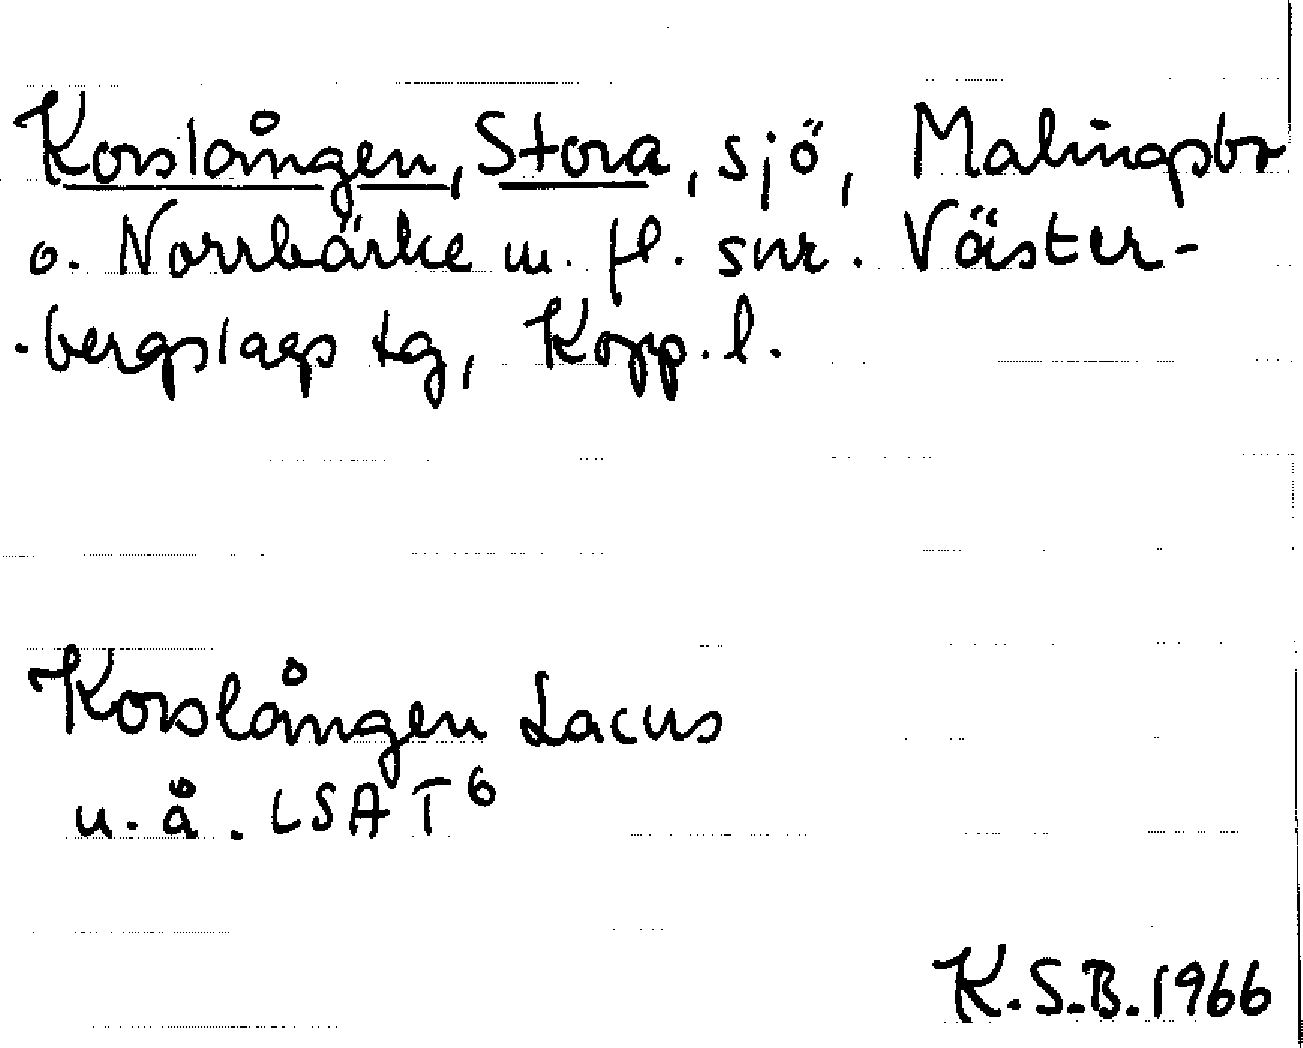 Korslången, Stora, sjö, Malingsbo
o. Norrbärke m. fl. snr. Väster-
bergslags tg, Kopp. l.
Korslången Lacus
u. å. LSA T6
K.S.B. 1966